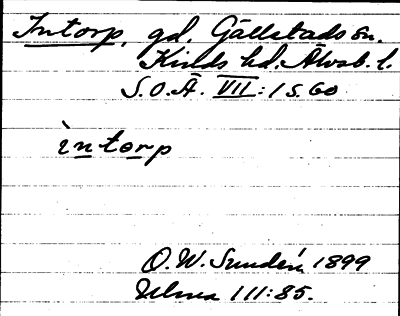 Intorp, gd. Gällstads sn.
Kinds hd. Älvsb. l.
S.O.Ä. VII:1 S.60
ìntorp
O.W. Sundén 1899
Ulma 111:85.